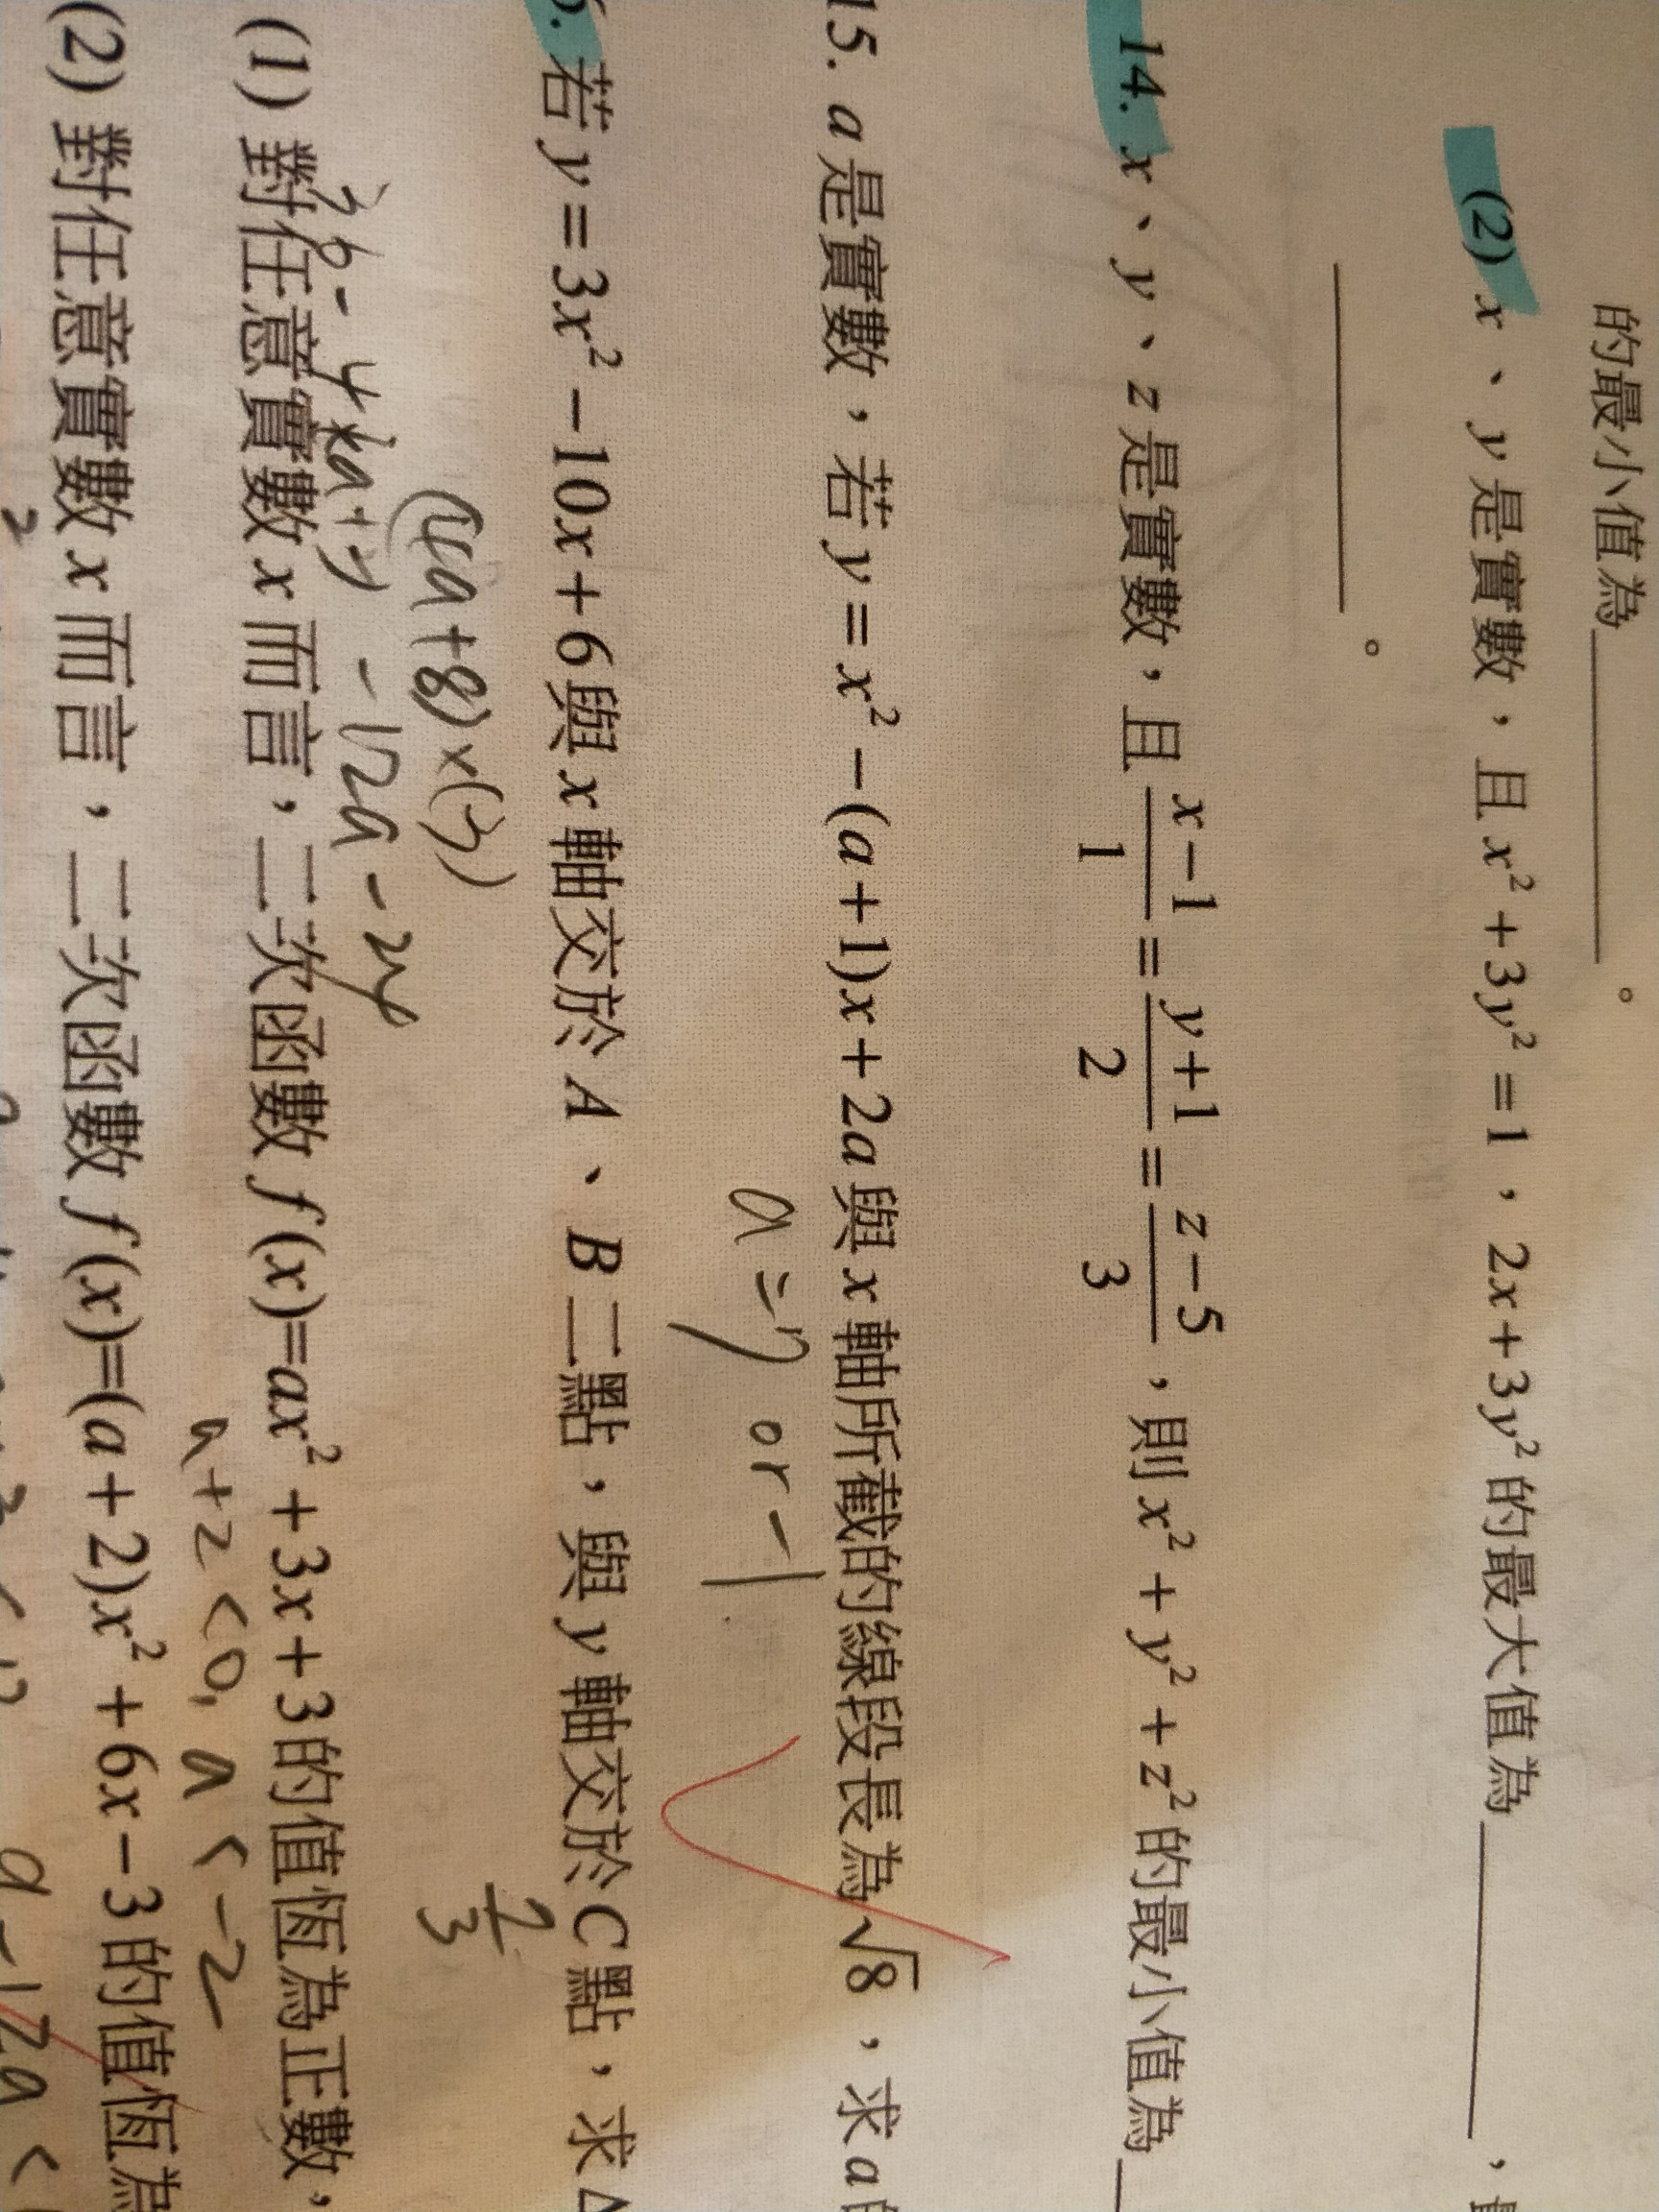 的最小值為______。
(2) x、y是實數,且 x²+3y²=1,2x+3y²的最大值為______,
______。
14. x、y、z是實數,且 (x-1)/1 = (y+1)/2 = (z-5)/3,則 x²+y²+z²的最小值為__
15. a是實數,若 y=x²-(a+1)x+2a與 x 軸所截的線段長為√8,求 a
a=7 or -1
若 y=3x²-10x+6與 x 軸交於 A、B二點,與 y 軸交於 C點,求
2/3
(4a+8)×(-3)
-12a-24
(1) 對任意實數 x 而言,二次函數 f(x)=ax²+3x+3的值恆為正數,
a+2<0, a<-2
(2) 對任意實數 x 而言,二次函數 f(x)=(a+2)x²+6x-3的值恆為
-12a<